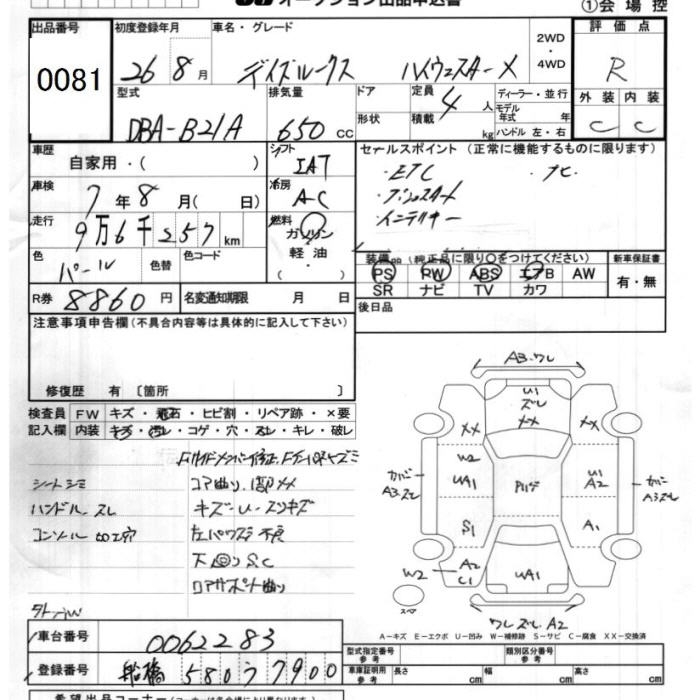 オークション出品申込書
①会場控
出品番号 初度登録年月 車名・グレード 2WD・4WD 評価点
0081 26年8月 デイズルークス ハイウェスターX R
型式 排気量 ドア 定員 ディーラー・並行 外装 内装
形状 4人 モデル年式 年
DBA-B21A 650cc 積載 kg ハンドル 左・右 C C
車歴 シフト セールスポイント (正常に機能するものに限ります)
自家用・( ) IAT ・ETC ・ナビ
車検 冷房 ・プッシュスタート
7年8月( 日) A-C ・インテリキー
走行 燃料
9万6千257km ガソリン・軽油・( )
色 色替 色コード 装備 (純正品に限り○をつけてください) 新車保証書
パール PS PW ABS エアB AW 有・無
SR ナビ TV カワ
R券 8860円 名変通知期限 月 日 後日品
注意事項申告欄(不具合内容等は具体的に記入して下さい)
修復歴 有 〔箇所 〕
検査員 FW キズ・飛石・ヒビ割・リペア跡・×要
記入欄 内装 キズ・汚レ・コゲ・穴・スレ・キレ・破レ
シートシミ コア曲り、
ハンドル スレ キズ・U・スリキズ
コンソール加工穴 左パワスラ不良
コアサポート曲り
A3 ワレ
U1
ズレ
XX XX XX
W2 U1
UA1 A2
カバー A3ズレ カバー A3ズレ
S1 A1
W2 A2 C1 UA1
スペア
ワレ ズレ A2
A-キズ E-エクボ U-凹み W-補修跡 S-サビ C-腐食 XX-交換済
車台番号 0062283
登録番号 船橋 580 ワ 7900
型式指定番号 参考 類別区分番号 参考
車庫証明用 参考 長さ cm 幅 cm 高さ cm
希望出品コーナー